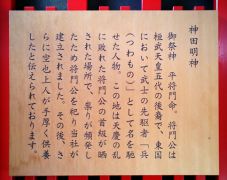 神田明神
御祭神　平将門命。将門公は
桓武天皇五代の後裔で、東国
において武士の先駆者「兵
（つわもの）」として名を馳
せた人物。この地は天慶の乱
に敗れた将門公の首級が晒
された場所で、祟りが頻発し
たため将門公を祀り当社が
建立されました。その後、さ
らに空也上人が手厚く供養
したと伝えられております。